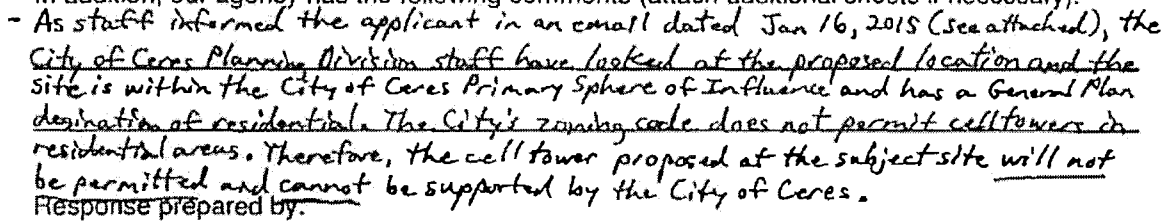 In addition, our agency has the following comments (attach additional sheets if necessary):
- As staff informed the applicant in an email dated Jan 16, 2015 (see attached), the
City of Ceres Planning Division staff have looked at the proposed location and the
site is within the City of Ceres Primary Sphere of Influence and has a General Plan
desination of residential. The City's zoning code does not permit cell towers in
residential areas. Therefore, the cell tower proposed at the subject site will not
be permitted and cannot be supported by the City of Ceres.
Response prepared by: